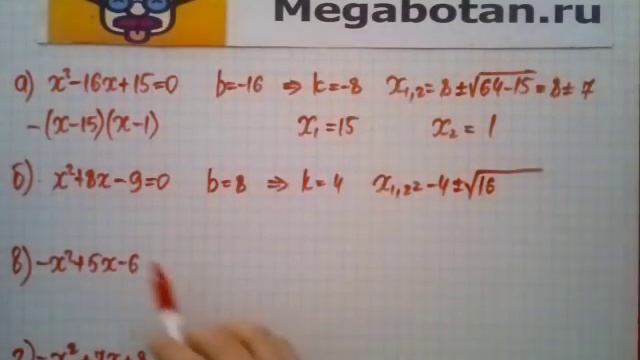 Megabotan.ru
а) x²-16x+15=0 b=-16 ⇒ k=-8 x₁,₂=8±√64-15=8±7
-(x-15)(x-1) x₁=15 x₂=1
б) x²+8x-9=0 b=8 ⇒ k=4 x₁,₂=-4±√16
в) -x²+5x-6
г) -x²+7x+8